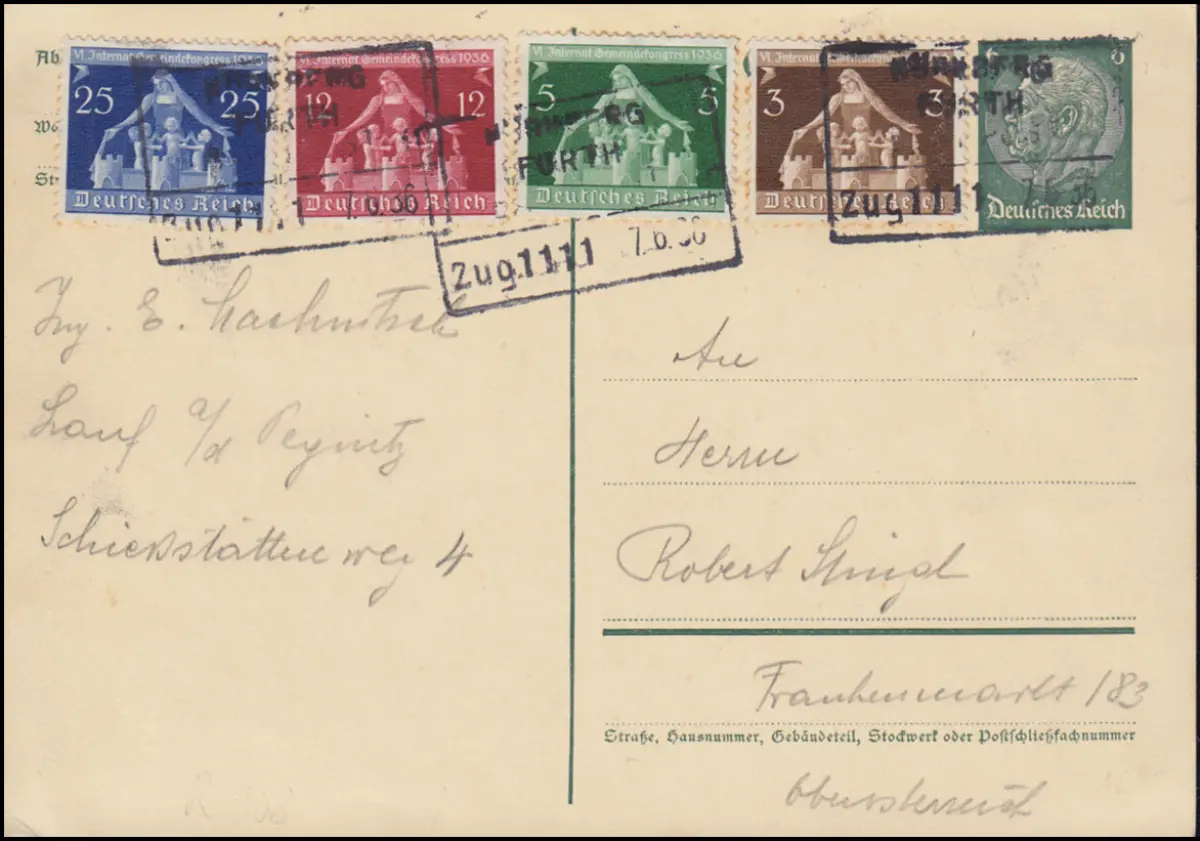 VI. Internat. Gemeindekongress 1936
25 25
Deutsches Reich
VI. Internat. Gemeindekongress 1936
12 12
Deutsches Reich
VI. Internat. Gemeindekongress 1936
5 5
Deutsches Reich
VI. Internat. Gemeindekongress
3 3
Reich
6 6
Deutsches Reich
NÜRNBERG
FÜRTH
7.6.36
NÜRNBERG
FÜRTH
Zug1111 7.6.36
NÜRNBERG
FÜRTH
Zug1111 7.6.36
Ab
Str
Ing. E.
Lauf a/d Pegnitz
Schiesstättenweg 4
An
Herrn
Robert Stingl
Frankenmarkt 183
Straße, Hausnummer, Gebäudeteil, Stockwerk oder Postschließfachnummer
Oberösterreich